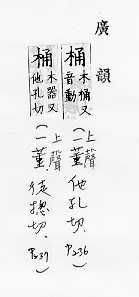 廣韻
桶木桶又音動(上聲一董他孔切.P236)
桶木器又他孔切(上聲一董徒揔切.P237)